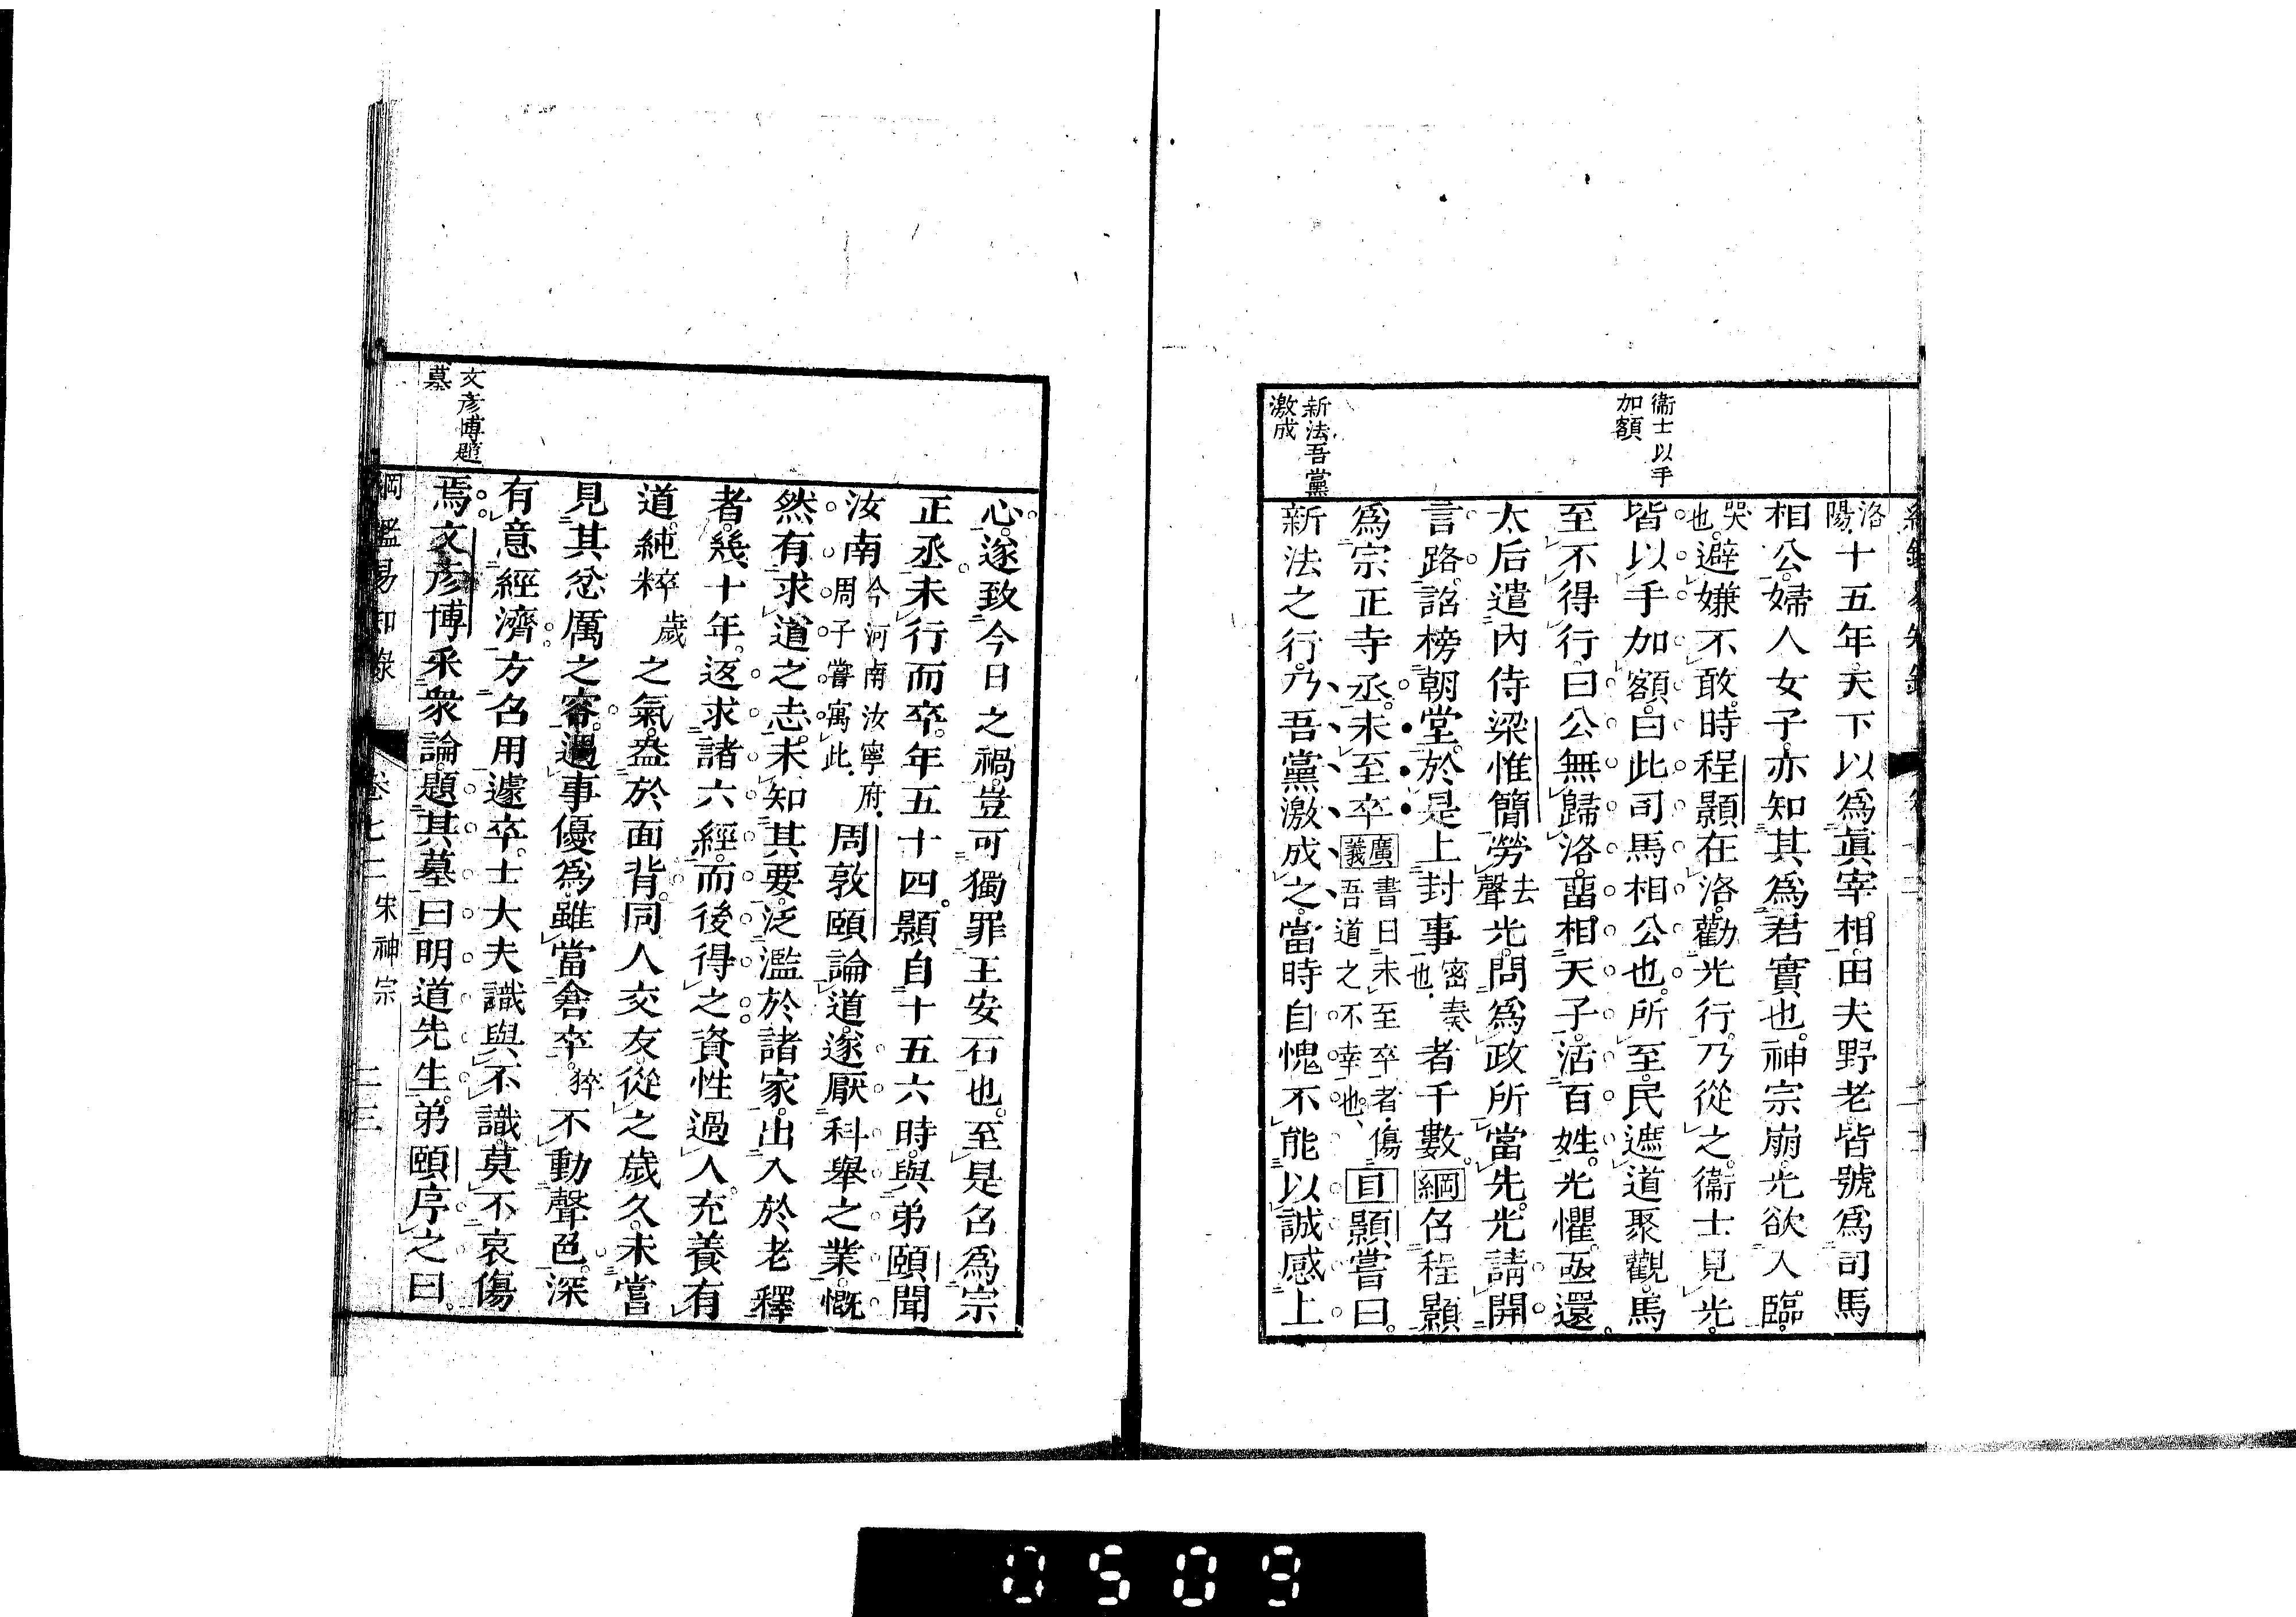 衞士以手
加額
新法吾黨
激成
洛陽十五年。天下以爲眞宰相。田夫野老皆號爲司馬
相公。婦人女子。亦知其爲君實也。神宗崩。光欲入臨。
哭也。避嫌不敢。時程顥在洛。勸光行。乃從之。衞士見光。
皆以手加額。曰此司馬相公也。所至。民遮道聚觀。馬
至不得行。曰公無歸洛。畱相天子。活百姓。光懼。亟還。
太后遣內侍梁惟簡勞去聲光。問爲政所當先。光請開
言路。詔榜朝堂。於是上封事密奏也。者千數。綱召程顥
爲宗正寺丞。未至卒廣義書曰未至卒者。傷吾道之不幸也。目顥嘗曰。
新法之行。乃吾黨激成之。當時自愧不能以誠感上
文彥博題
墓
心。遂致今日之禍。豈可獨罪王安石也。至是召爲宗
正丞。未行而卒。年五十四。顥自十五六時。與弟頤聞
汝南今河南汝寧府。周子嘗寓此。周敦頤論道。遂厭科舉之業。慨
然有求道之志。未知其要。泛濫於諸家。出入於老釋
者。幾十年。返求諸六經。而後得之。資性過人。充養有
道。純粹歲之氣。盎於面背。同人交友從之歲久。未嘗
見其忿厲之容。遇事優爲。雖當倉卒猝。不動聲色。深
有意經濟。方召用遽卒。士大夫識與不識。莫不哀傷
焉。文彥博釆衆論。題其墓曰明道先生。弟頤序之曰。
綱鑑易知錄 卷七二 宋神宗 二三